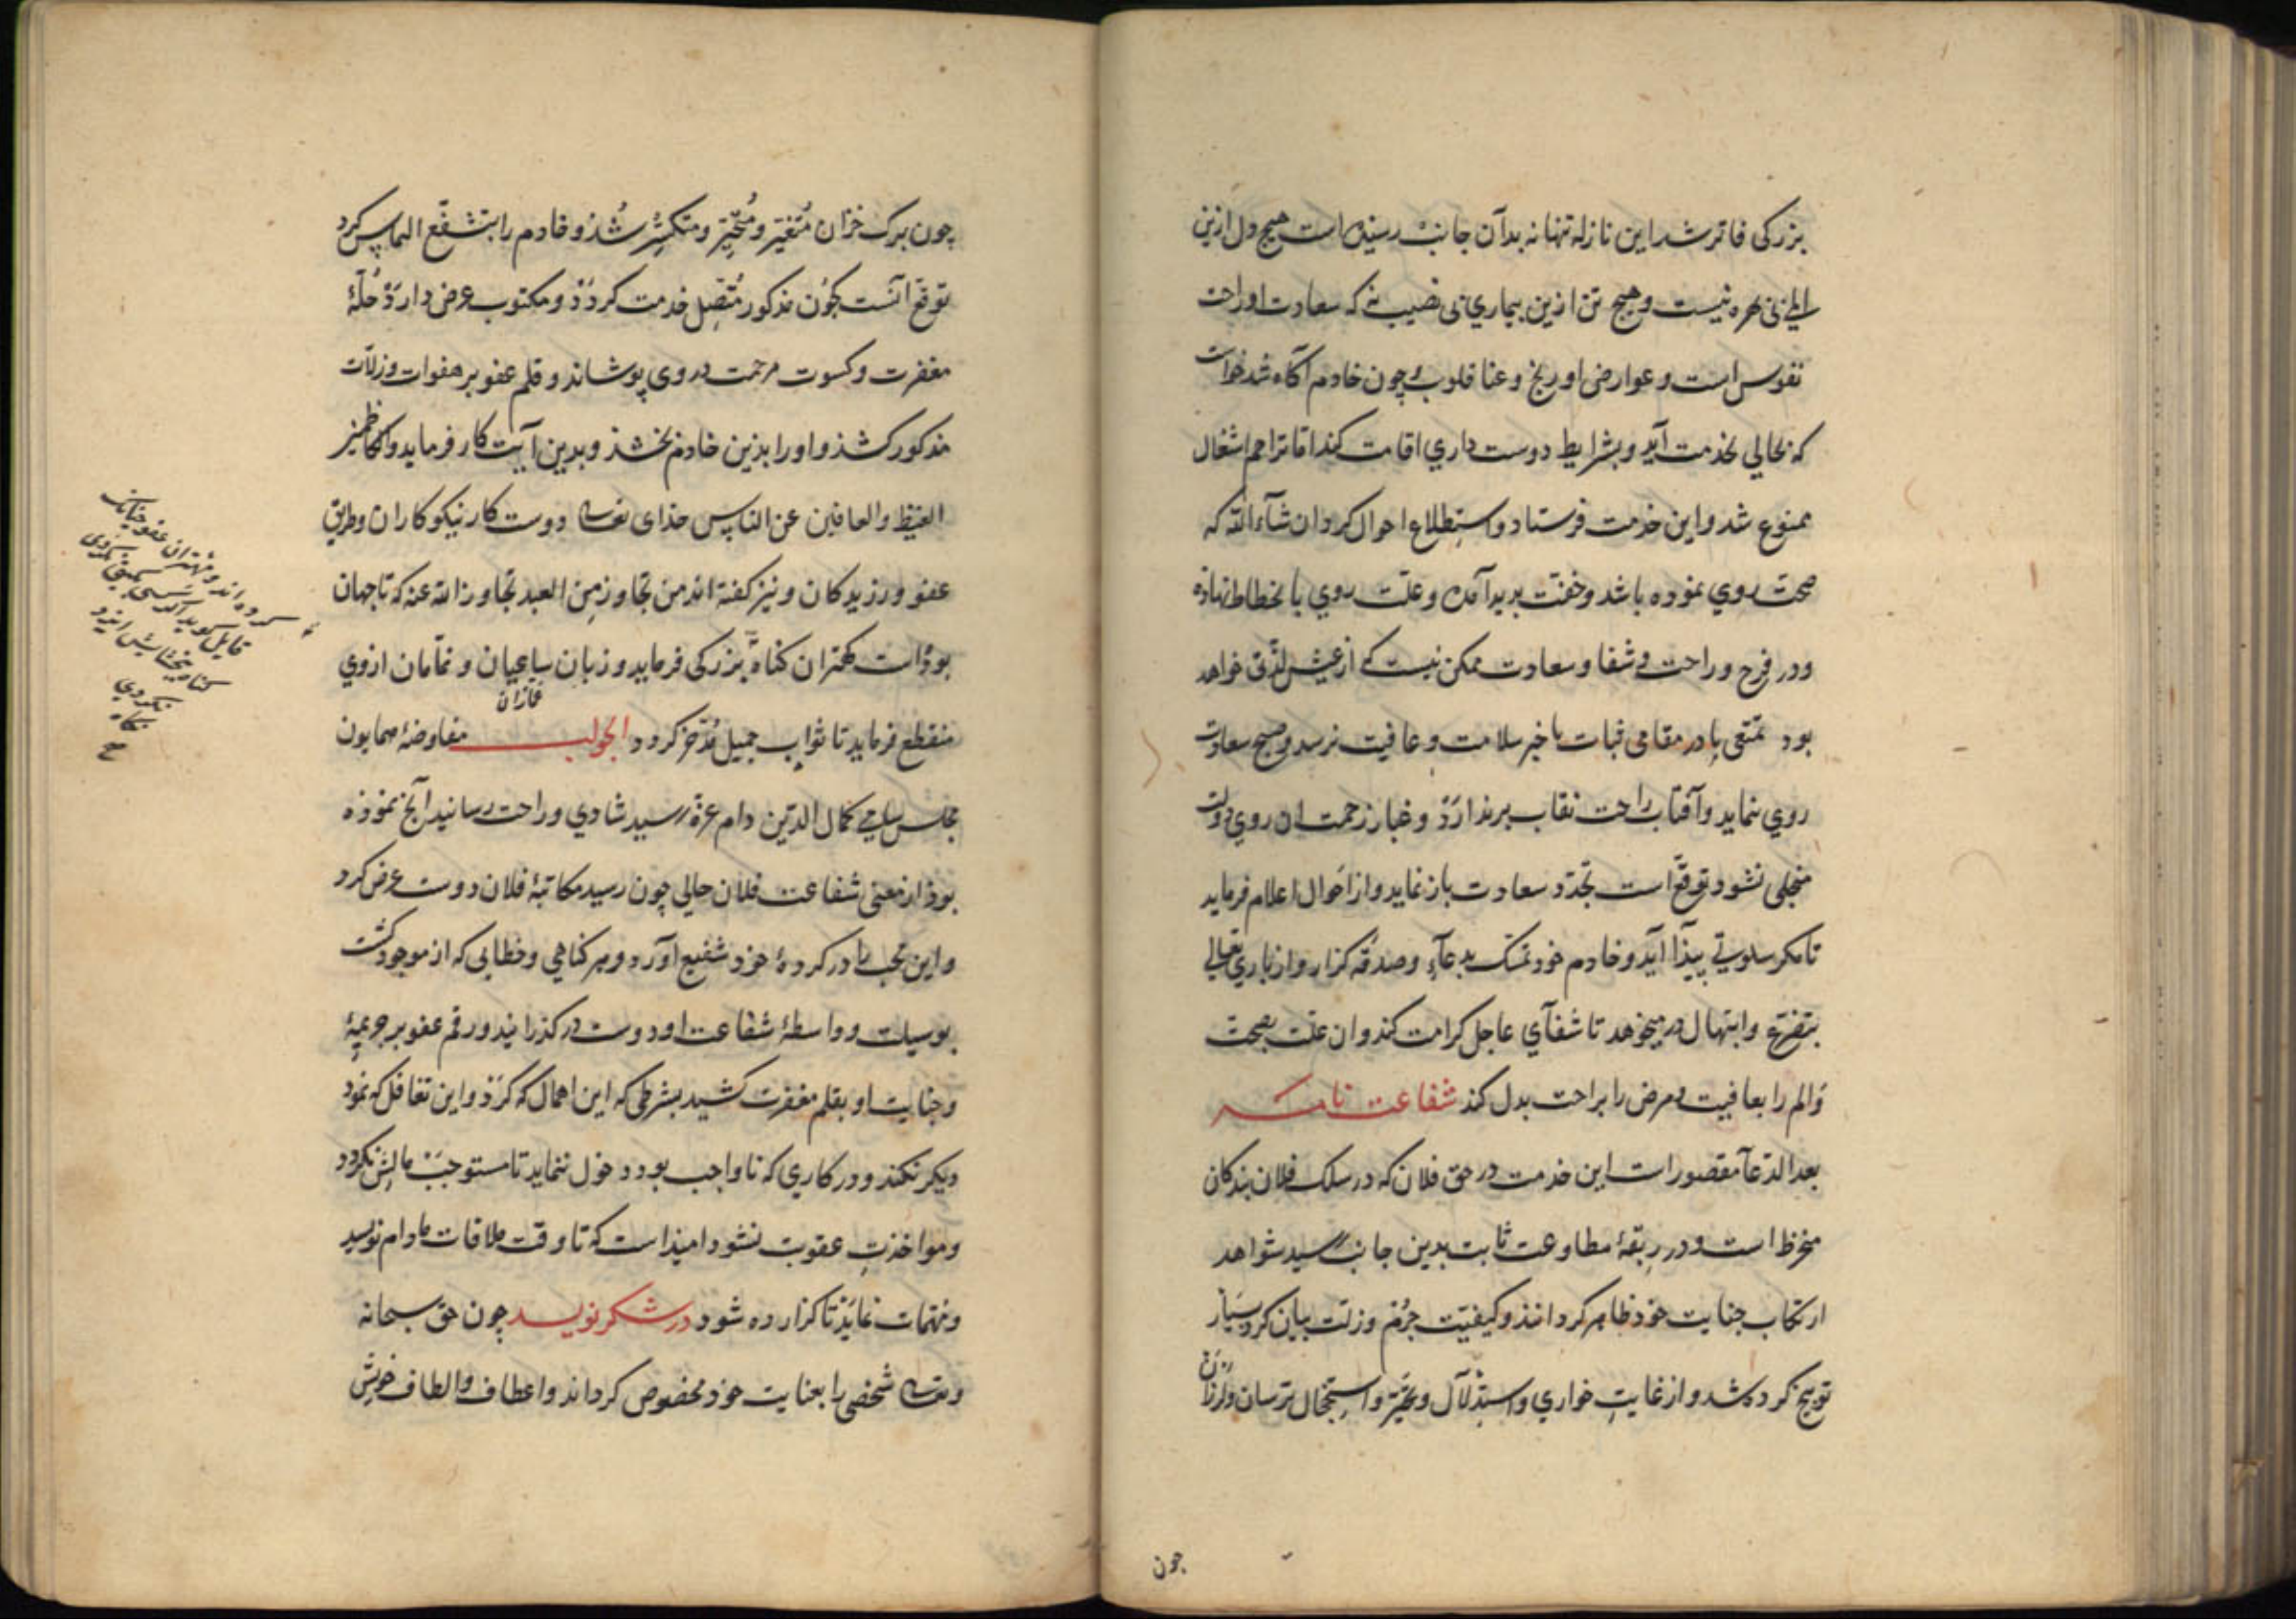 بزرکی فاتر شد این نازله تنها نه بدآن جانب رسیده است هیچ دل ازین
الم بی بهره نیست و هیچ تن ازین بیماری بی نصیب نی که سعادت او راحت
نفوس است و عوارض او رنج و عنا قلوب و چون خادم آکاه شد خواست
که بحالی بخدمت آید و بشرایط دوست داری اقامت کند اما تراحم اشغال
ممنوع شد و این خدمت فرستاد و استطلاع احوال کرد ان شآء الله که
صحت روی نموده باشد و خفت پدید آمده و علت روی بانحطاط نهاده
و در فرح و راحت و شفا و سعادت ممکن نیست که از عیش لذتی خواهد
بود تمتعی یا در مقامی ثبات یا خبر سلامت و عافیت نرسد و صبح سعادت
روی ننماید و آفتاب راحت نقاب برندارذ و غبار زحمت ان روی دولت
منجلی نشود توقع است تجدد سعادت باز نماید و از احوال اعلام فرماید
تا مکر سلوتی پیذا آید و خادم خود تمسک بدعآء و صدقه کزارد و از باری تعالی
بتضرع و ابتهال در میخوهد تا شفآی عاجل کرامت کند و ان علت بصحت
و الم را بعافیت و مرض را براحت بدل کند شفاعت نامه
بعد الدعآ مقصور است این خدمت در حق فلان که در سلک فلان بندکان
منخرط است و در ربقهٔ مطاوعت ثابت بدین جانب رسید شواهد
ارتکاب جنایت خود ظاهر کردانذ و کیفیت جرم و زلت بیان کرد بسیار
توبیخ کرده شد و از غایت خواری و استذلال و تحیر و استخجال ترسان و لرزان
چون
چون برک خزان متغیر و متحیر و متکسر شذ و خادم را بتشفع التماس کرد
توقع آنست کچون مذکور متصل خدمت کردذ و مکتوب عرض دارذ حلهٔ
مغفرت و کسوت مرحمت در وی پوشاند و قلم عفو بر هفوات و زلات
مذکور کشذ و او را بذین خادم بخشذ و بدین آیت کار فرماید والکاظمین
الغیظ والعافین عن الناس خذای تعالی دوست کار نیکوکاران و طریق
عفو ورزیدکان و نیز کفته اند من تجاوز من العبد تجاوز الله عنه که تا جهان
بوذاست کهتران کناه بزرکی فرماید و زبان ساعیان و نمامان از وی
غمازان
منقطع فرماید تا ثواب جمیل مدخر کردد الجواب مفاوضهٔ همایون
مجلس سامی کمال الدین دام عزه رسید شادی و راحت رسانید آنچ نموذه
بوذ از معنی شفاعت فلان حالی چون رسید مکاتبهٔ فلان دوست عرض کرد
و این محب را در کردهٔ خود شفیع آورد و هر کناهی و خطایی که از موجود کشت
بوسیلت و واسطهٔ شفاعت او دوست در کذرانید و رقم عفو بر جریمهٔ
و جنایت او بقلم مغفرت کشید بشرطی که این اهمال که کرذ و این تغافل که نمود
دیکر نکند و در کاری که نا واجب بود دخول ننماید تا مستوجب مالش نکردد
و مواخذت عقوبت نشود امیذ است که تا وقت ملاقات مادام نویسد
و مهمات نمایذ تا کزارده شود در شکر نویسد چون حق سبحانه
و تعالی شخصی را بعنایت خود مخصوص کرداند و اعطاف و الطاف خویش
کرده اند و مهتران عفو چنانک
قایل کوید
نکردی